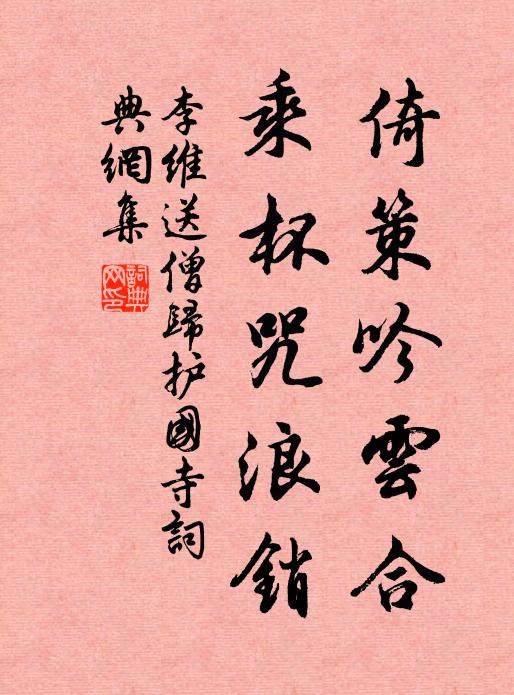 倚策吟雲合
乘杯咒浪銷
李維送僧歸护國寺詞
典網集
詞典網印